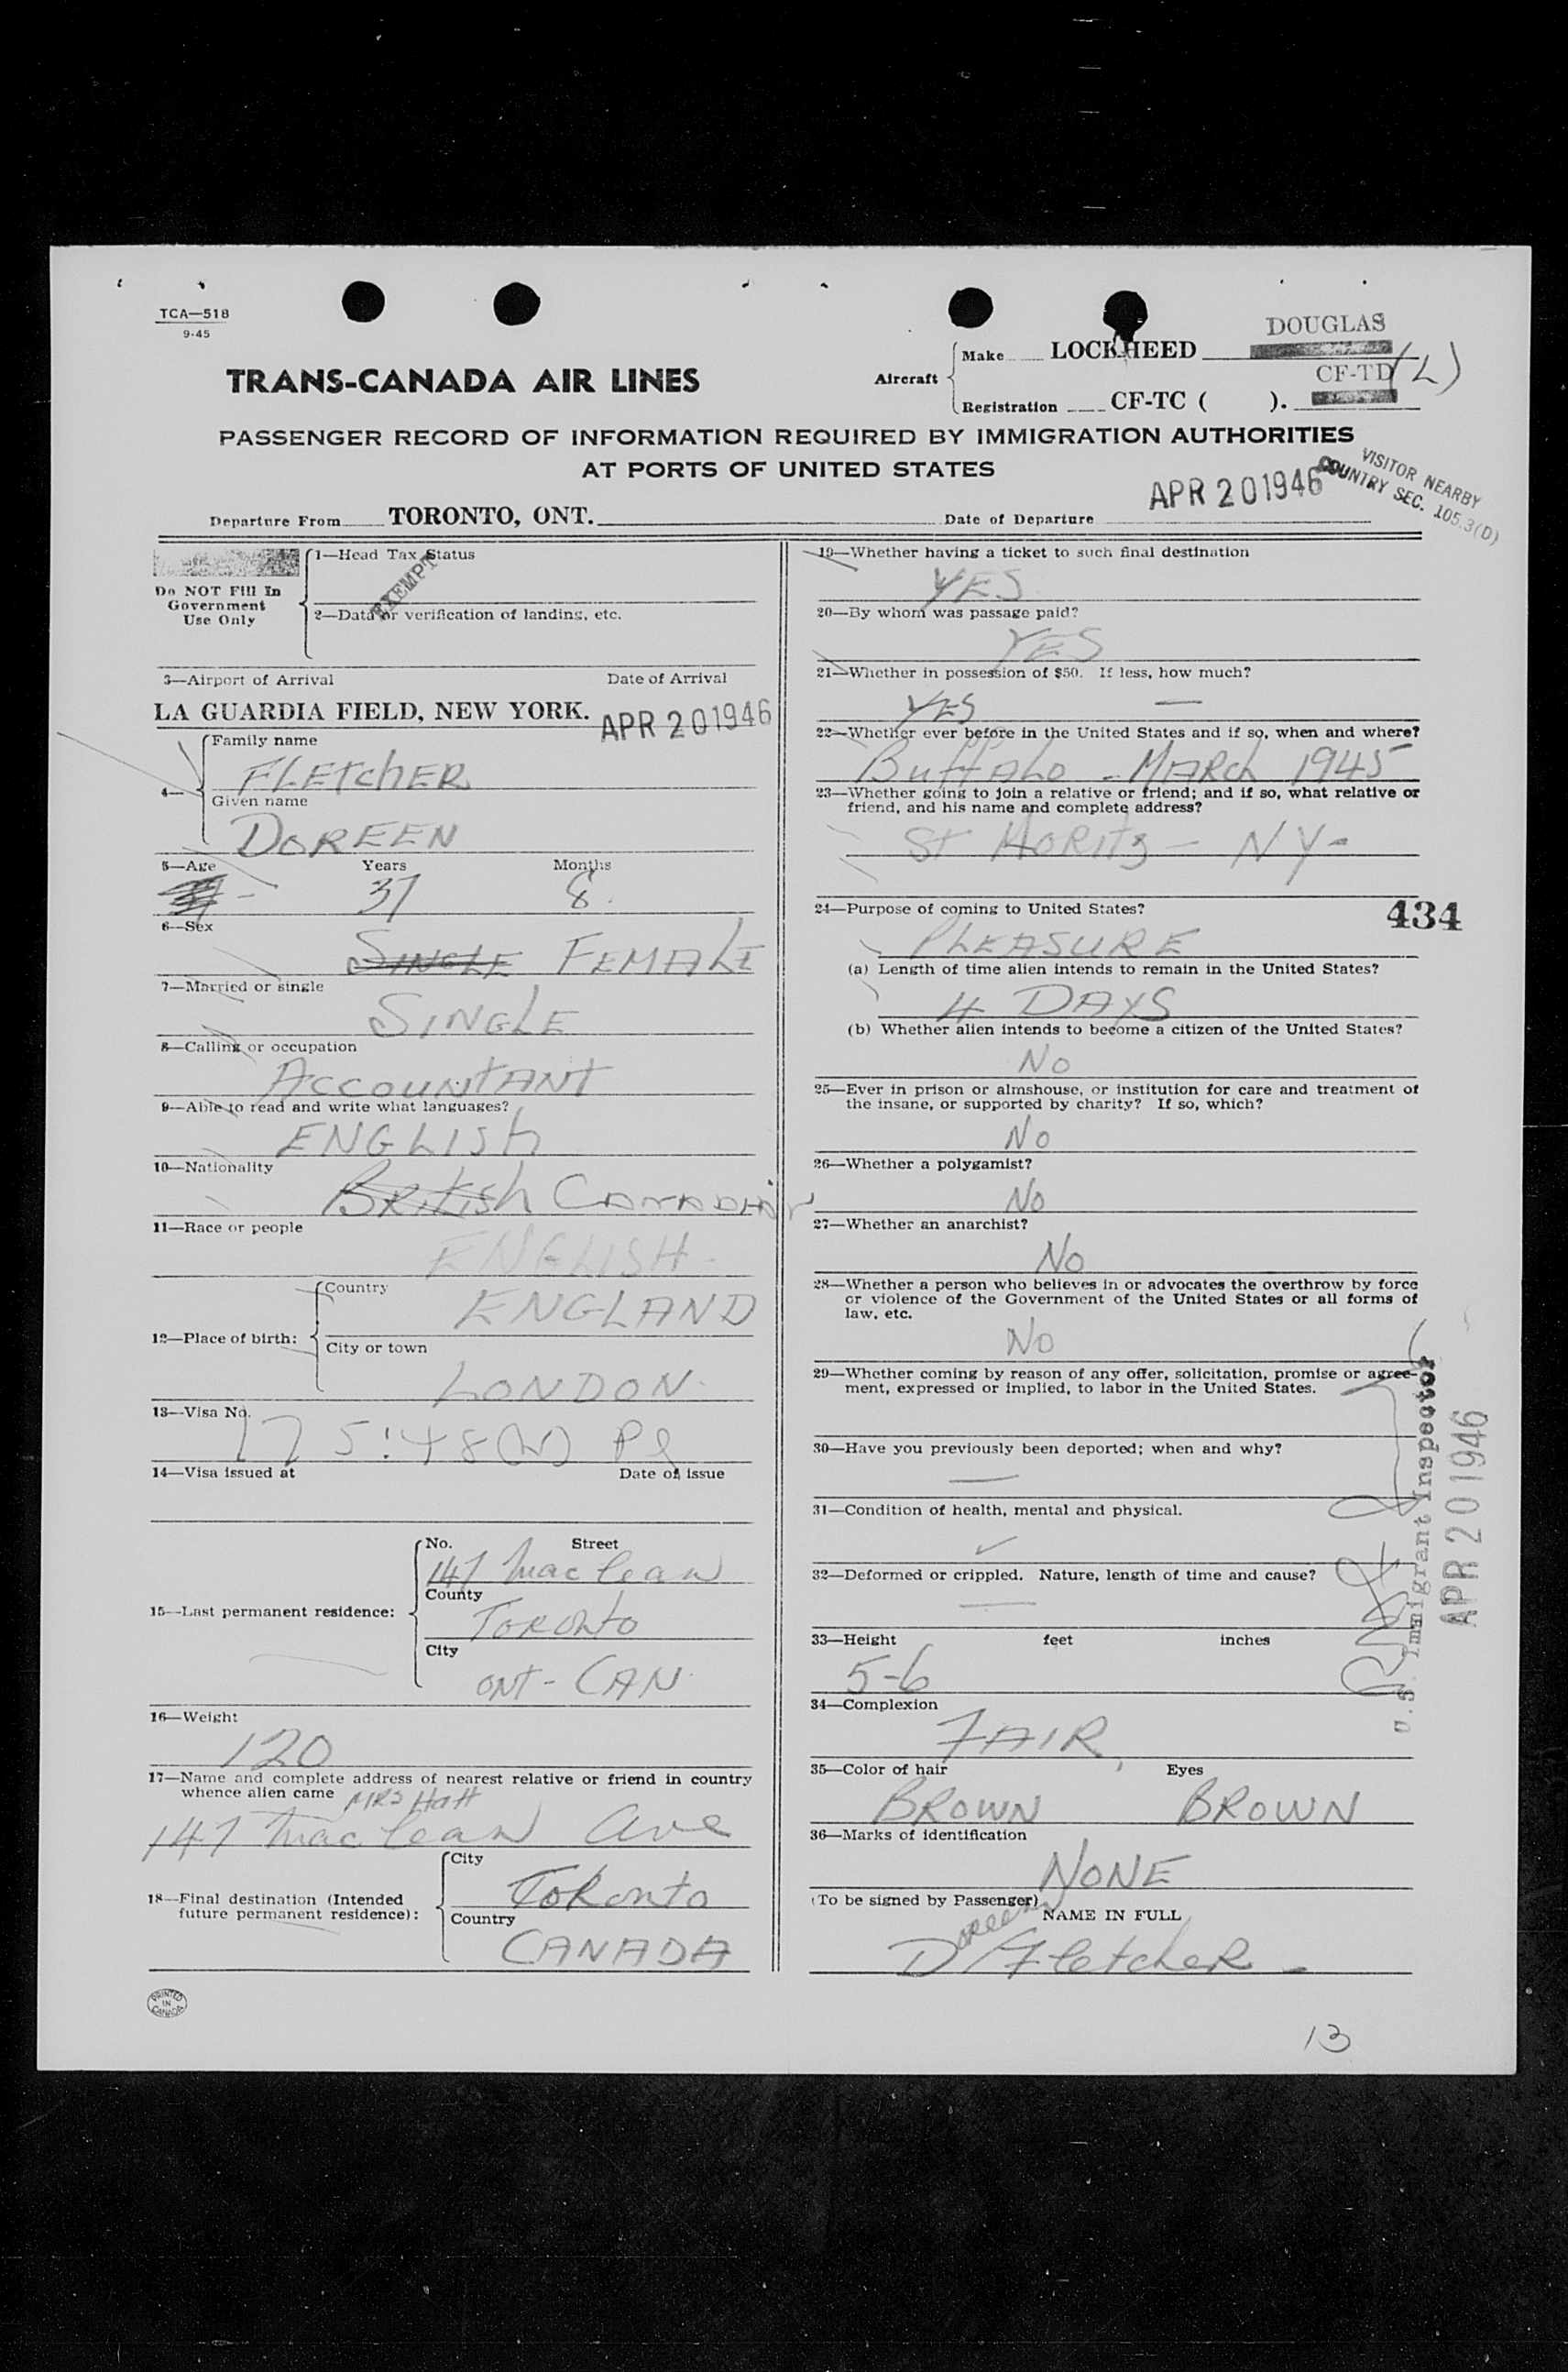 TCA—518
9-45
DOUGLAS
Make LOCKHEED
TRANS-CANADA AIR LINES
Aircraft
CF-TD (L)
Registration CF-TC ( ).
PASSENGER RECORD OF INFORMATION REQUIRED BY IMMIGRATION AUTHORITIES
AT PORTS OF UNITED STATES
VISITOR NEARBY
COUNTRY SEC. 105.3(D)
Departure From TORONTO, ONT. Date of Departure APR 20 1946
Do NOT Fill In
Government
Use Only
1—Head Tax Status
EXEMPT
2—Data or verification of landing, etc.
3—Airport of Arrival Date of Arrival
LA GUARDIA FIELD, NEW YORK. APR 20 1946
4—
Family name
FLETCHER
Given name
DOREEN
5—Age Years Months
37 8.
6—Sex
SINGLE FEMALE
7—Married or single
SINGLE
8—Calling or occupation
ACCOUNTANT
9—Able to read and write what languages?
ENGLISH
10—Nationality
BRITISH CANADIAN
11—Race or people
ENGLISH.
12—Place of birth:
Country
ENGLAND
City or town
LONDON.
13—Visa No.
14—Visa issued at Date of issue
15—Last permanent residence:
No. Street
147 Maclean
County
TORONTO
City
ONT - CAN.
16—Weight
120
17—Name and complete address of nearest relative or friend in country
whence alien came
MRS
147 Maclean Ave
18—Final destination (Intended
future permanent residence):
City
Toronto
Country
CANADA
PRINTED
IN
CANADA
19—Whether having a ticket to such final destination
YES
20—By whom was passage paid?
YES
21—Whether in possession of $50. If less, how much?
YES —
22—Whether ever before in the United States and if so, when and where?
BUFFALO - MARCH 1945
23—Whether going to join a relative or friend; and if so, what relative or
friend, and his name and complete address?
ST MORITZ - NY -
434
24—Purpose of coming to United States?
PLEASURE
(a) Length of time alien intends to remain in the United States?
4 DAYS
(b) Whether alien intends to become a citizen of the United States?
NO
25—Ever in prison or almshouse, or institution for care and treatment of
the insane, or supported by charity? If so, which?
NO
26—Whether a polygamist?
NO
27—Whether an anarchist?
NO
28—Whether a person who believes in or advocates the overthrow by force
or violence of the Government of the United States or all forms of
law, etc.
NO
29—Whether coming by reason of any offer, solicitation, promise or agree-
ment, expressed or implied, to labor in the United States.
30—Have you previously been deported; when and why?
—
31—Condition of health, mental and physical.
✓
32—Deformed or crippled. Nature, length of time and cause?
—
33—Height feet inches
5-6
34—Complexion
FAIR
35—Color of hair Eyes
BROWN BROWN
36—Marks of identification
NONE
(To be signed by Passenger)
NAME IN FULL
Doreen Fletcher -
U.S. Immigrant Inspector
APR 20 1946
13